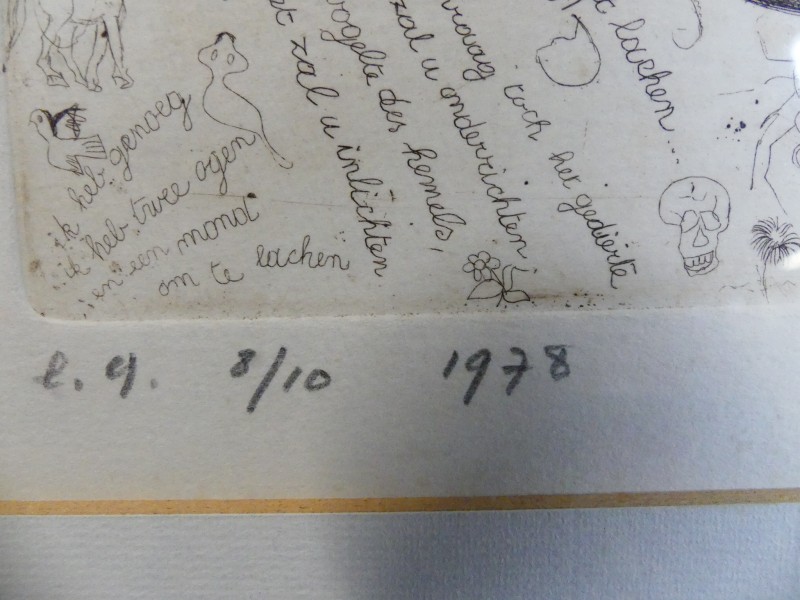 ik heb genoeg
ik heb twee ogen
en een mond
om te lachen
zal u inlichten
vogelte des hemels,
zal u onderrichten.
vraag toch het gedierte
lachen...
e. a. 8/10 1978